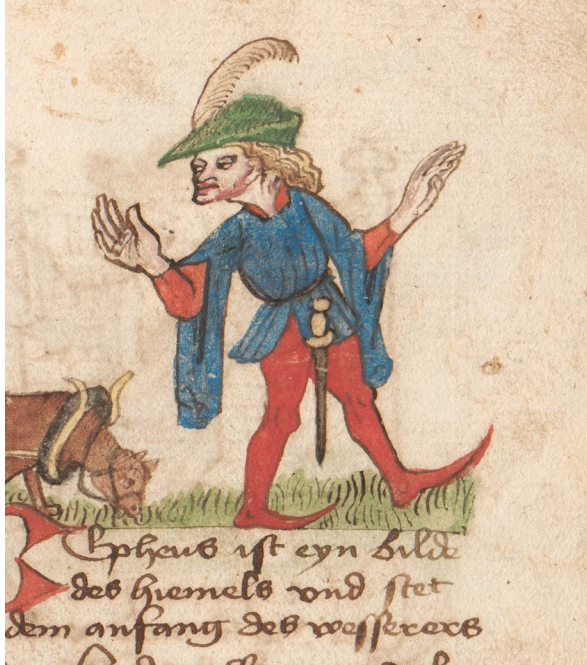 Epheus ist eyn bilde
des hiemels vnd stet
dem anfang des wesserers